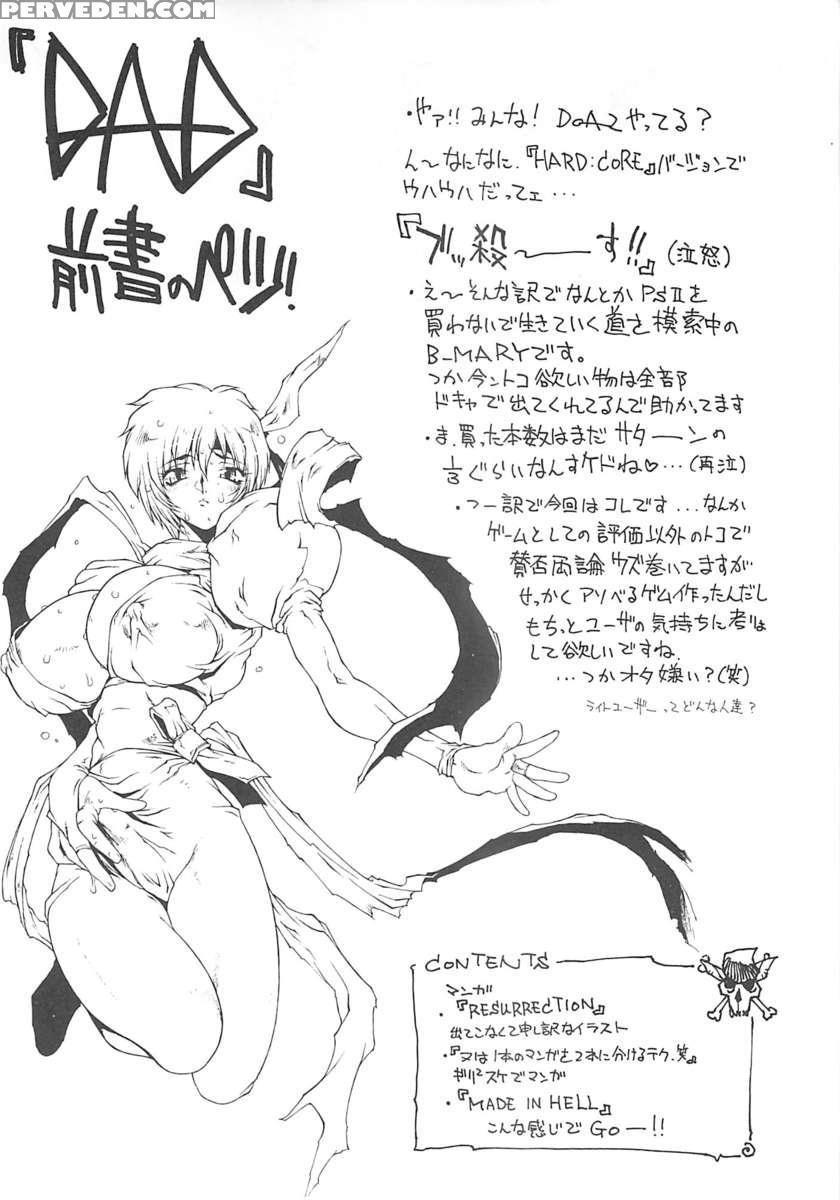 PERVEDEN.COM
『DAD』
前書のペェジ!
・やァ!!みんな! DoA2やってる?
ん〜なになに、『HARD:CoRE』バージョンで
ウハウハだってェ…
『ブッ殺〜す!!』(泣怒)
・え〜そんな訳でなんとかPSⅡを
買わないで生きていく道を模索中の
B_MARYです。
つか今ントコ欲しい物は全部
ドキャで出てくれてるんで助かってます
・ま、買った本数はまだサターーンの
1/3ぐらいなんすケドね♡…(再泣)
・つー訳で今回はコレです…なんか
ゲームとしての評価以外のトコで
賛否両論ウズ巻いてますが
せっかくアソべるゲム作ったんだし
もちっとユーザの気持ちに考慮
して欲しいですね、
…つかオタ嫌い?(笑)
ライトユーザーってどんな人達?
CONTENTS
マンガ
・『RESURRECTION』
出てこなくて申し訳なイラスト
・『又は1本のマンガを2本に分けるテク、笑』
ギリ²スケでマンガ
・『MADE IN HELL』
こんな感じでGO―!!